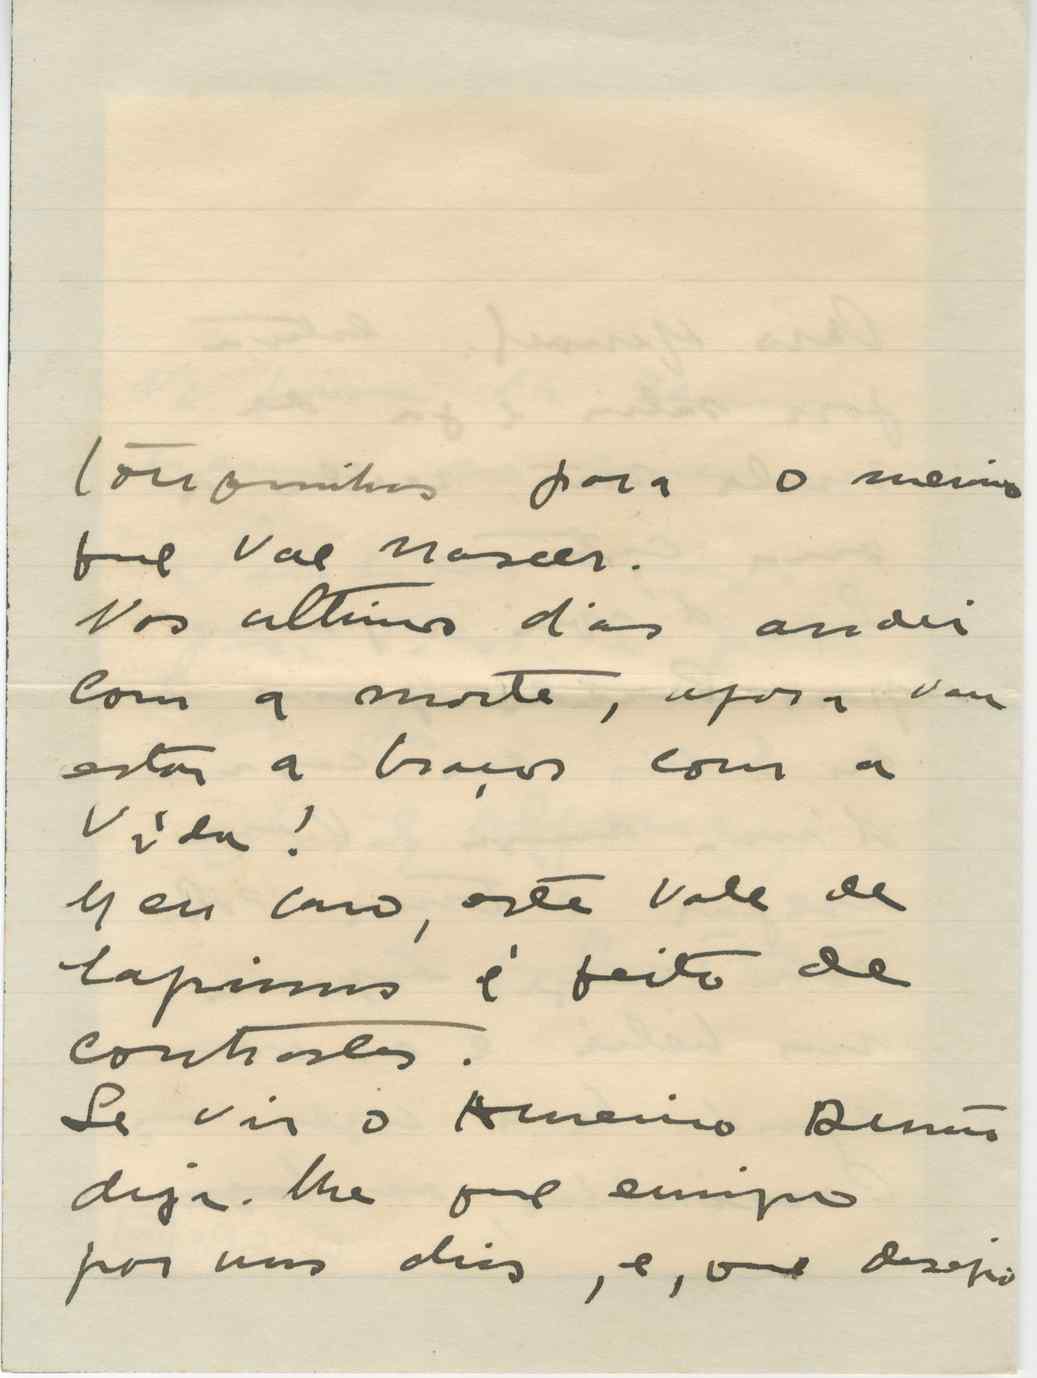 touquinhas para o menino
que vae nascer.
Nos ultimos dias andei
com a morte, agora vou
estar a braços com a
Vida!
Meu caro, este vale de
lagrimas é feito de
contrastes.
Se vir o Americo Durão
diga-lhe que emigro
por uns dias, e, que desejo